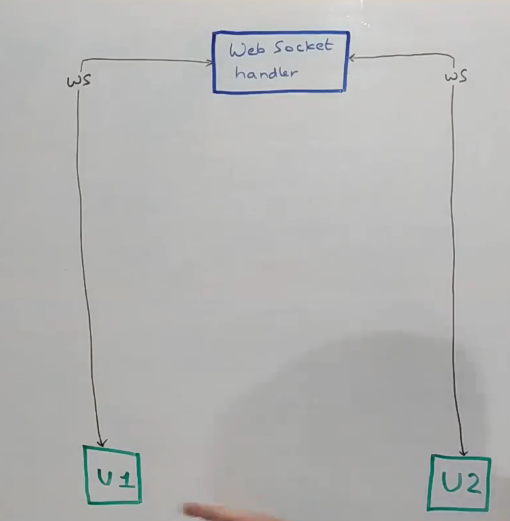 Web Socket
handler
WS
WS
U1
U2